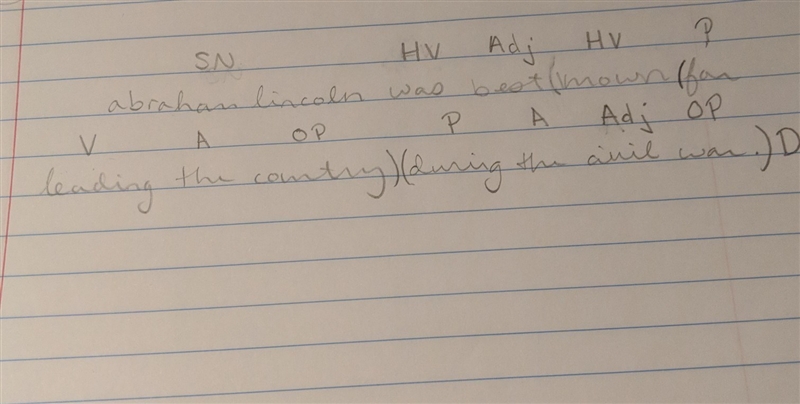 SN HV Adj HV P
abraham lincoln was best known (for
V A OP P A Adj OP
leading the country) (during the civil war.) D